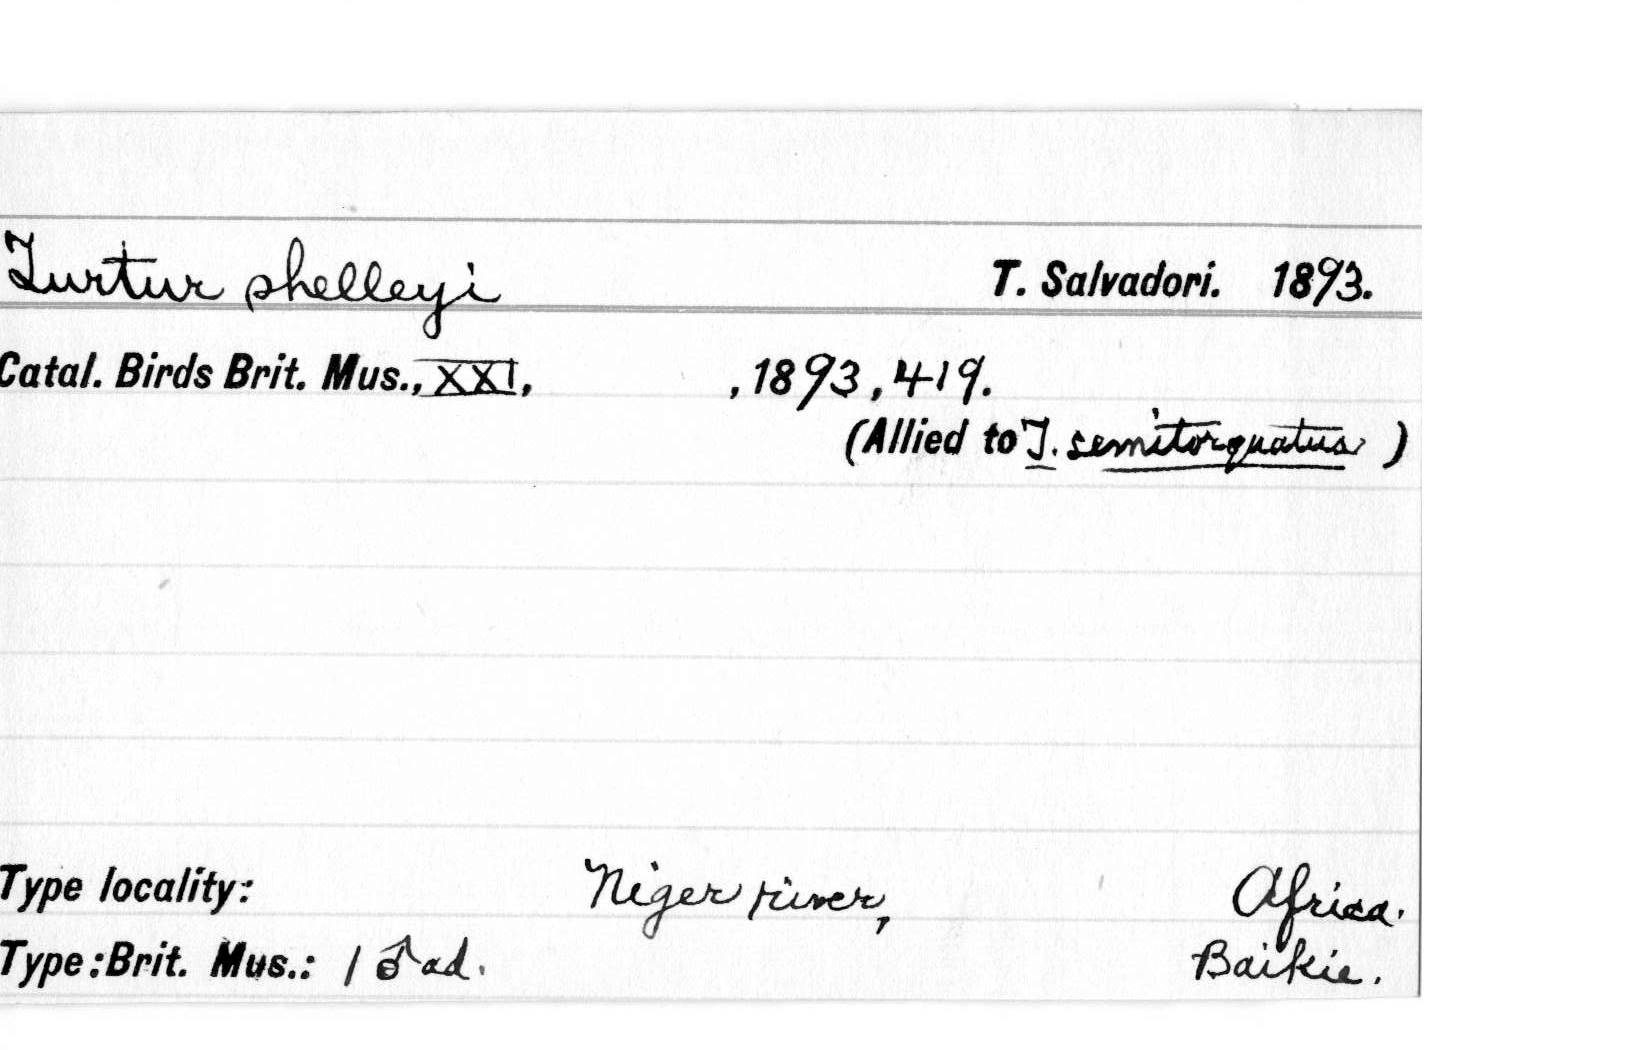 Turtur shelleyi T. Salvadori. 1893.
Catal. Birds Brit. Mus., XXI, , 1893, 419.
(Allied to T. semitorquatus )
Type locality: Niger river, Africa.
Type: Brit. Mus.: 1 ♂ ad. Baikie.